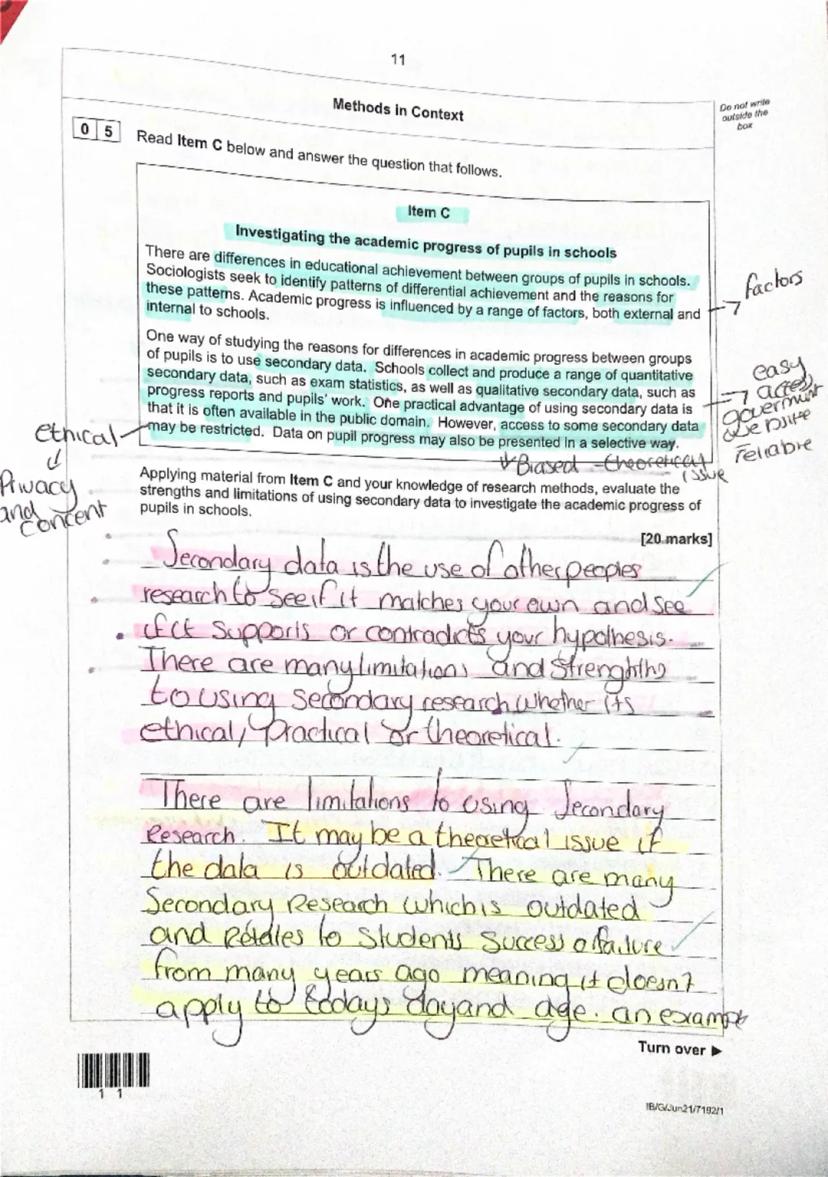 11
Methods in Context
Do not write
outside the
box
0 5
Read Item C below and answer the question that follows.
Item C
Investigating the academic progress of pupils in schools
There are differences in educational achievement between groups of pupils in schools.
Sociologists seek to identify patterns of differential achievement and the reasons for
these patterns. Academic progress is influenced by a range of factors, both external and
internal to schools.
factors
One way of studying the reasons for differences in academic progress between groups
of pupils is to use secondary data. Schools collect and produce a range of quantitative
secondary data, such as exam statistics, as well as qualitative secondary data, such as
progress reports and pupils' work. One practical advantage of using secondary data is
that it is often available in the public domain. However, access to some secondary data
may be restricted. Data on pupil progress may also be presented in a selective way.
easy
access
reliable
ethical
Privacy
and concent
Biased - theoretical
issue
Applying material from Item C and your knowledge of research methods, evaluate the
strengths and limitations of using secondary data to investigate the academic progress of
pupils in schools.
[20 marks]
Secondary data is the use of other peoples
research to see if it matches your own and see
if it supports or contradicts your hypothesis.
There are many limitations and Strenghths
to using Secondary research whether its
ethical, Practical or theoretical.
There are limitations to using Secondary
Research. It may be a theoretical issue if
the data is outdated. There are many
Secondary Research which is outdated
and Relates to Students Success failure
from many years ago meaning it doesn't
apply to todays day and age. an example
Turn over ►
1 1
IB/G/Jun21/7192/1